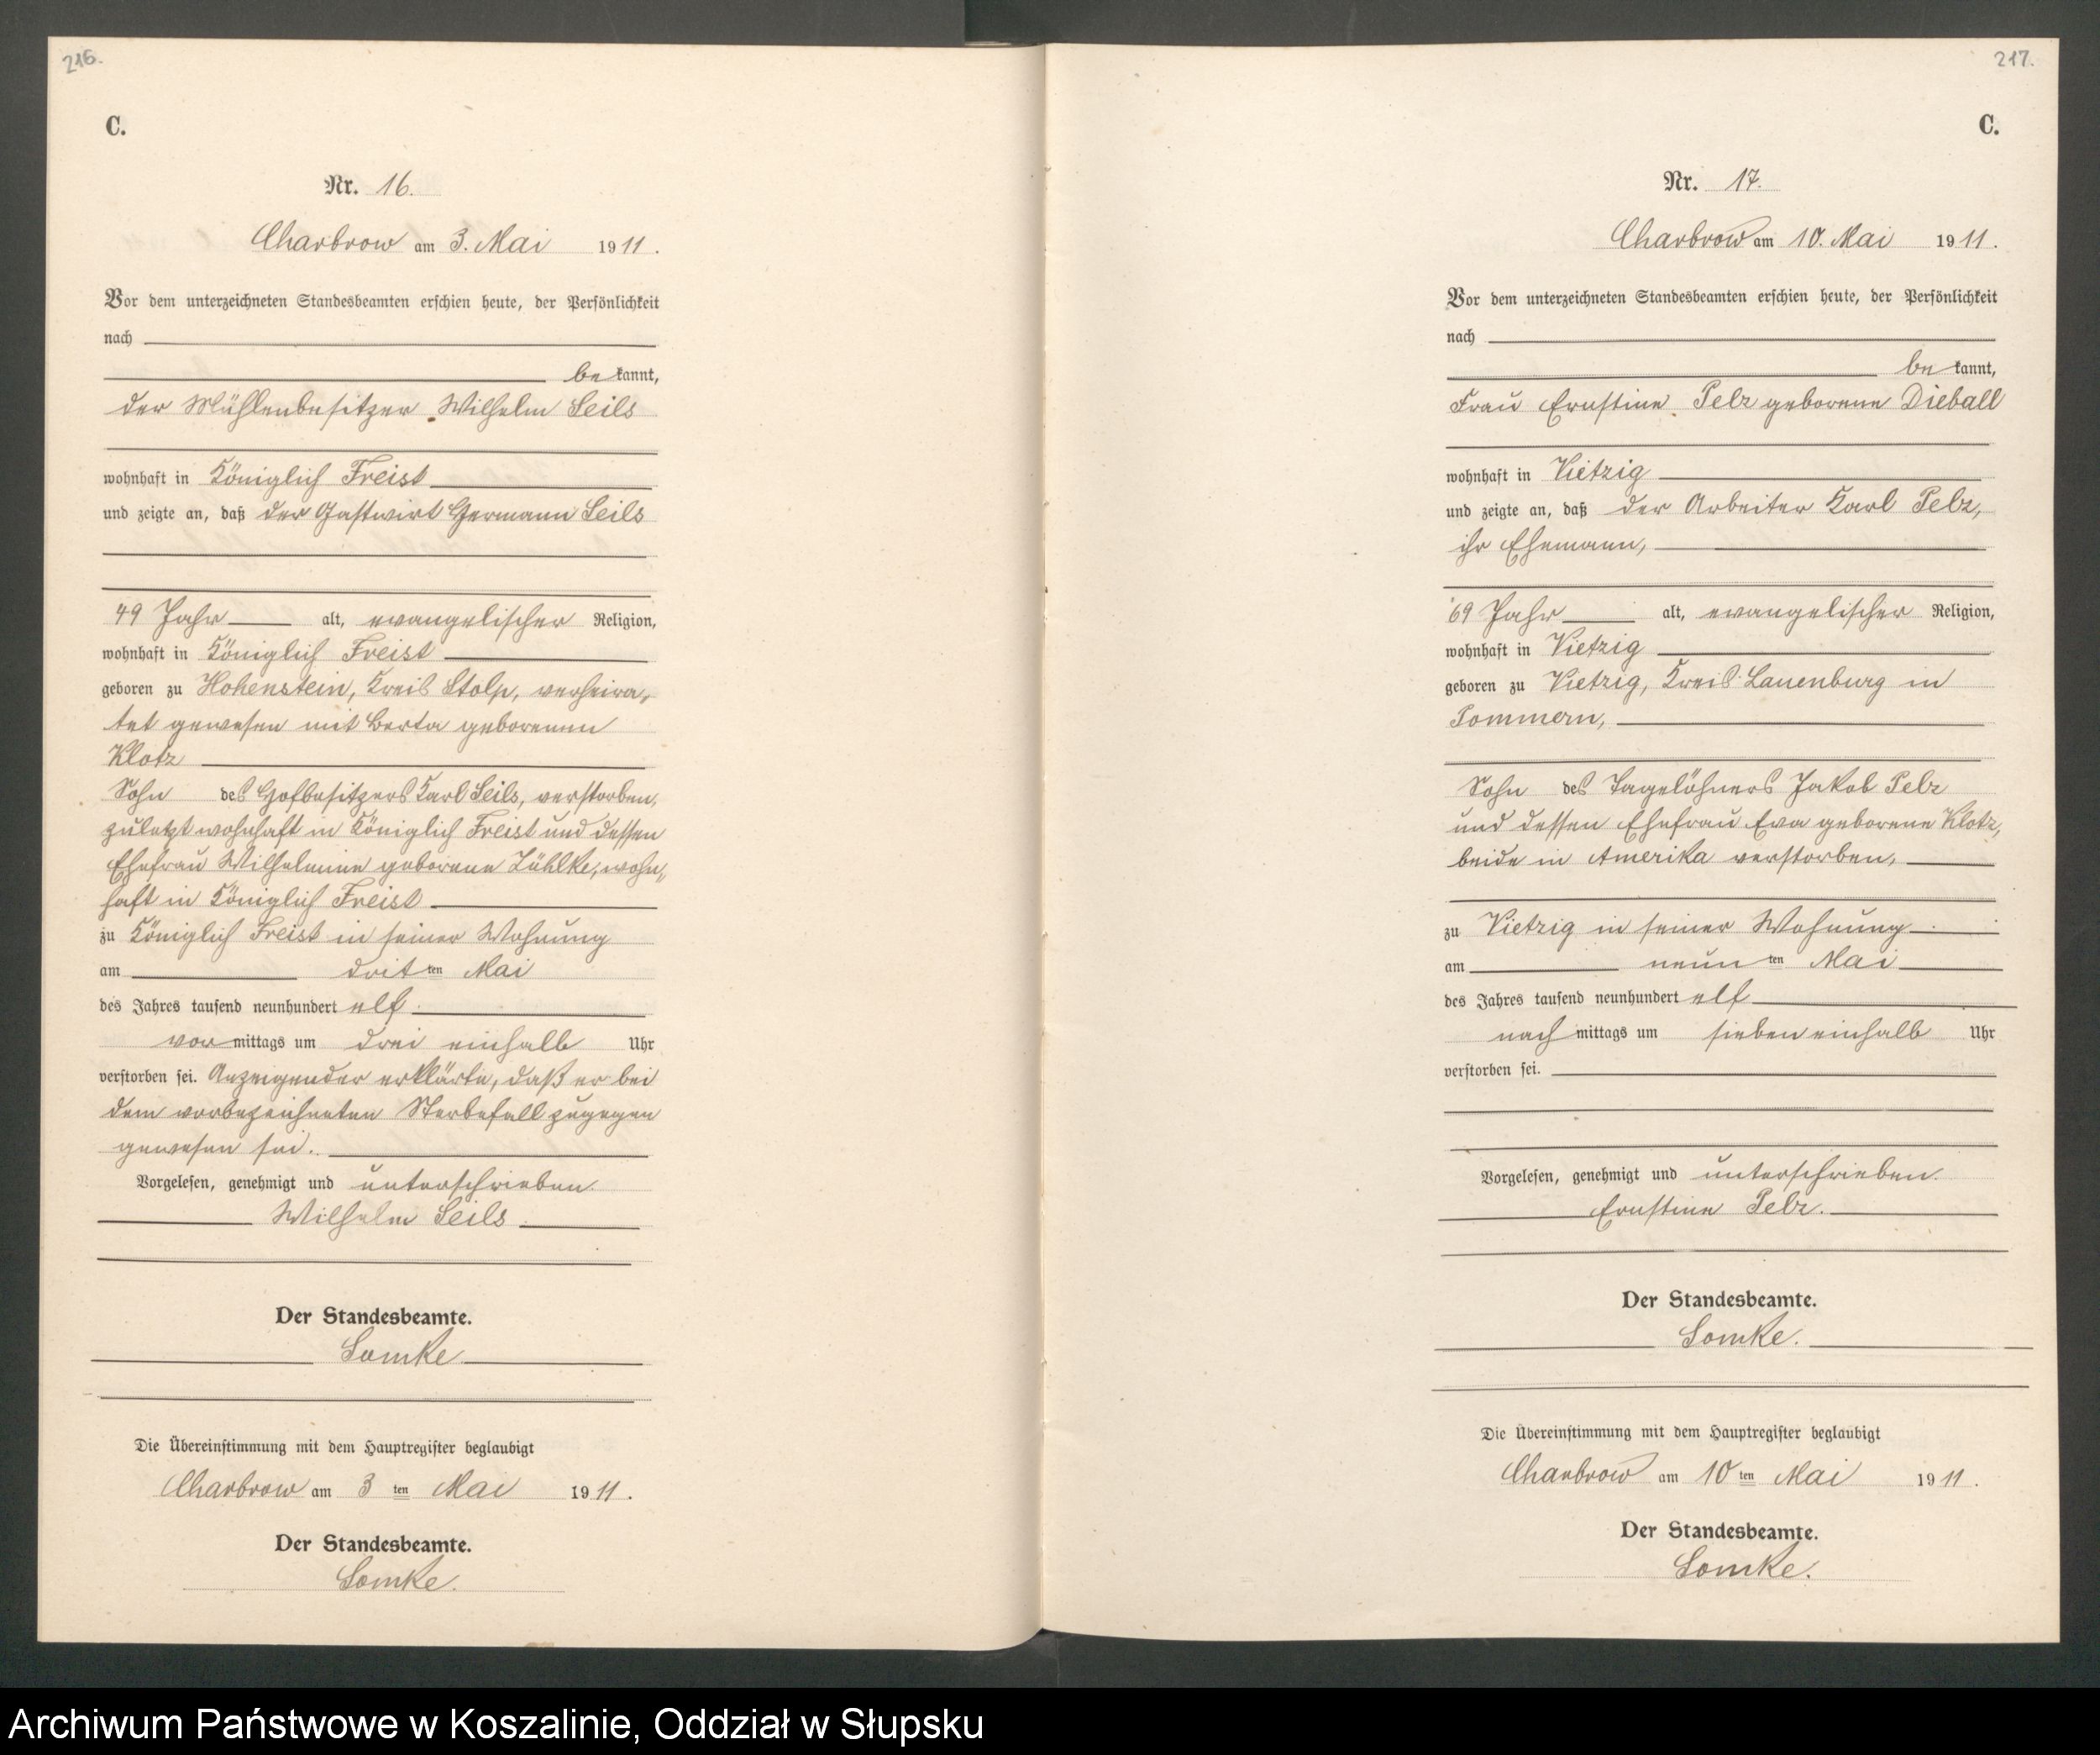 216.
C.
Nr. 16.
Charbrow am 3. Mai 1911.
Vor dem unterzeichneten Standesbeamten erschien heute, der Persönlichkeit
nach
be kannt,
der Mühlenbesitzer Wilhelm Seils
wohnhaft in Königlich Freist
und zeigte an, daß der Gastwirt Hermann Seils
49 Jahr alt, evangelischer Religion,
wohnhaft in Königlich Freist
geboren zu Hohenstein, Kreis Stolp, verheira-
tet gewesen mit Berta geborenen
Klotz
Sohn des Hofbesitzers Karl Seils, verstorben,
zuletzt wohnhaft in Königlich Freist und dessen
Ehefrau Wilhelmine geborene Lühlke, wohn-
haft in Königlich Freist
zu Königlich Freist in seiner Wohnung
am dritten Mai
des Jahres tausend neunhundert elf
vormittags um drei einhalb Uhr
verstorben sei. Anzeigender erklärte, daß er bei
dem vorbezeichneten Sterbefall zugegen
gewesen sei.
Vorgelesen, genehmigt und unterschrieben.
Wilhelm Seils
Der Standesbeamte.
Lomke
Die Übereinstimmung mit dem Hauptregister beglaubigt
Charbrow am 3ten Mai 1911.
Der Standesbeamte.
Lomke.
217.
C.
Nr. 17.
Charbrow am 10. Mai 1911.
Vor dem unterzeichneten Standesbeamten erschien heute, der Persönlichkeit
nach
be kannt,
Frau Ernstine Pelz geborene Dieball
wohnhaft in Vietzig
und zeigte an, daß der Arbeiter Karl Pelz,
ihr Ehemann,
69 Jahr alt, evangelischer Religion,
wohnhaft in Vietzig
geboren zu Vietzig, Kreis Lauenburg in
Pommern,
Sohn des Tagelöhners Jakob Pelz
und dessen Ehefrau Eva geborene Klotz,
beide in Amerika verstorben,
zu Vietzig in seiner Wohnung
am neunten Mai
des Jahres tausend neunhundert elf
nachmittags um sieben einhalb Uhr
verstorben sei.
Vorgelesen, genehmigt und unterschrieben.
Ernstine Pelz.
Der Standesbeamte.
Lomke.
Die Übereinstimmung mit dem Hauptregister beglaubigt
Charbrow am 10ten Mai 1911.
Der Standesbeamte.
Lomke.
Archiwum Państwowe w Koszalinie, Oddział w Słupsku